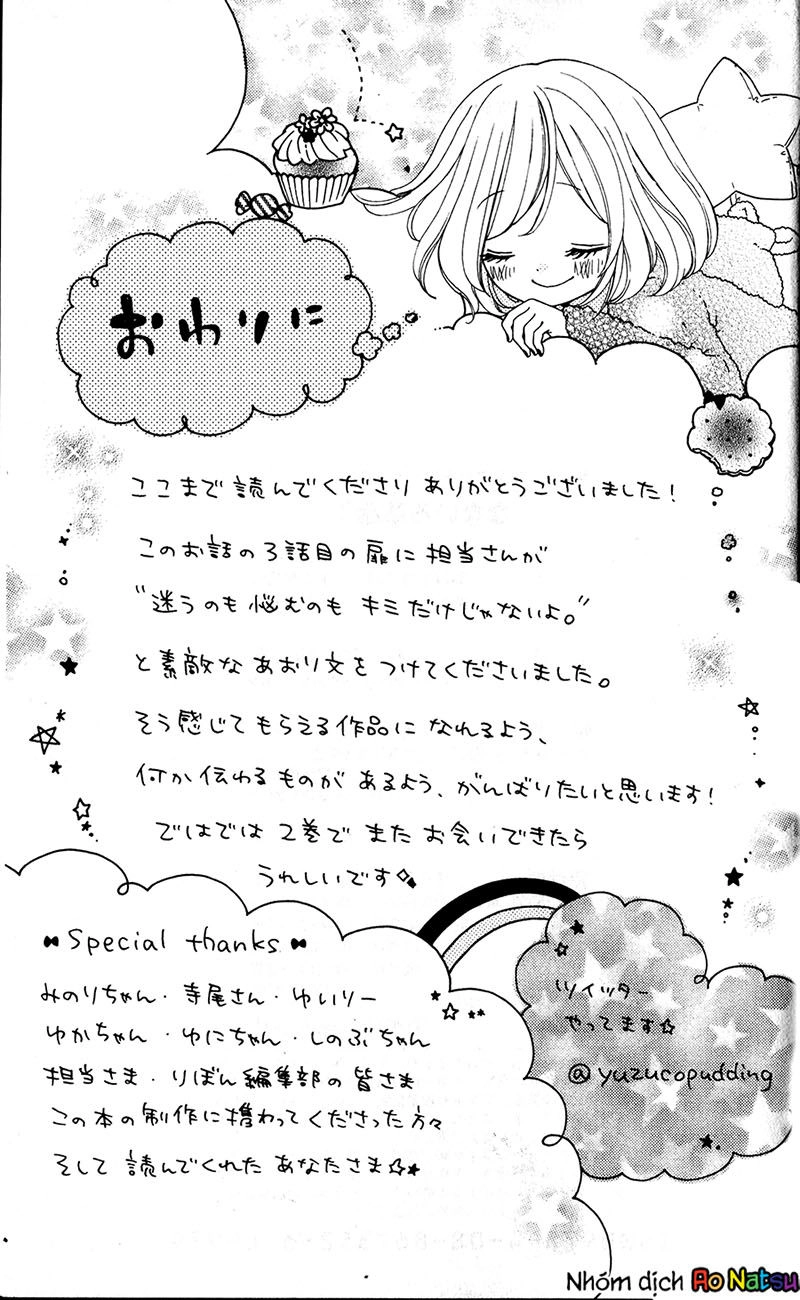 おわりに
ここまで読んでくださりありがとうございました!
このお話の3話目の扉に担当さんが
"迷うのも悩むのも キミだけじゃないよ。"
と素敵なあおり文をつけてくださいました。
そう感じてもらえる作品になれるよう、
何か伝わるものがあるよう、がんばりたいと思います!
ではでは 2巻で またお会いできたら
うれしいです
Special thanks
みのりちゃん・寺尾さん・ゆいりー
ゆかちゃん・ゆにちゃん・しのぶちゃん
担当さま・りぼん編集部の皆さま
この本の制作に携わってくださった方々
そして 読んでくれた あなたさま☆★
ツイッター
やってます☆
@yuzucopudding
Nhóm dịch Ao Natsu